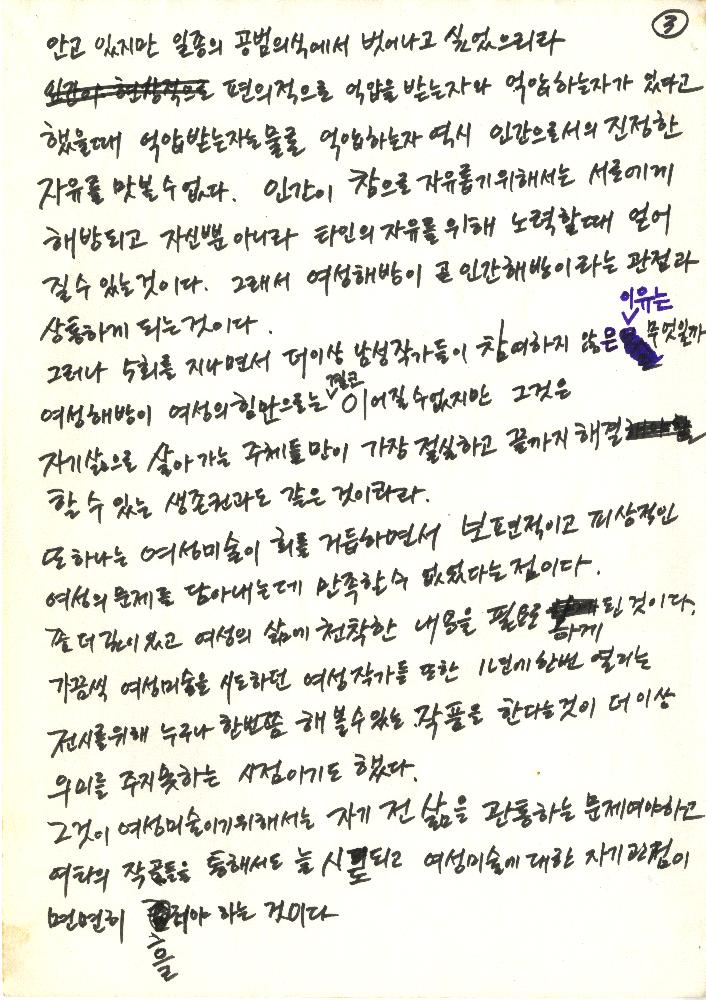 ③
안고 있지만 일종의 공범의식에서 벗어나고 싶었으리라
편의적으로 억압을 받는자와 억압하는자가 있다고
했을때 억압받는자는 물론 억압하는자 역시 인간으로서의 진정한
자유를 맛볼수없다. 인간이 참으로 자유롭기위해서는 서로에게
해방되고 자신뿐 아니라 타인의 자유를 위해 노력할때 얻어
질수 있는것이다. 그래서 여성해방이 곧 인간해방이라는 관점과
상통하게 되는것이다.
그러나 수회를 지나면서 더이상 남성작가들이 참여하지 않은 이유는 무엇일까
여성해방이 여성의 힘만으로는 결코 이어질수없지만 그것은
자기삶으로 살아가는 주체들만이 가장 절실하고 끝까지 해결
할 수 있는 생존권과도 같은 것이리라.
또하나는 여성미술이 회를 거듭하면서 보편적이고 피상적인
여성의 문제를 담아내는데 만족할수 없었다는점이다.
좀 더 깊이있고 여성의 삶에 천착한 내용을 필요로 하게 된 것이다.
가끔씩 여성미술을 시도하던 여성작가들 또한 1년에 한번 열리는
전시를위해 누구나 한번쯤 해볼수있는 작품을 한다는것이 더이상
의미를 주지못하는 시점이기도 했다.
그것이 여성미술이기위해서는 자기 전 삶을 관통하는 문제여야하고
여타의 작품들을 통해서도 늘 시도되고 여성미술에 대한 자기관점이
면면히 하는 것이다